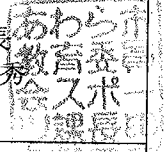 あわら市
教育委員
会スポー
課長
秀